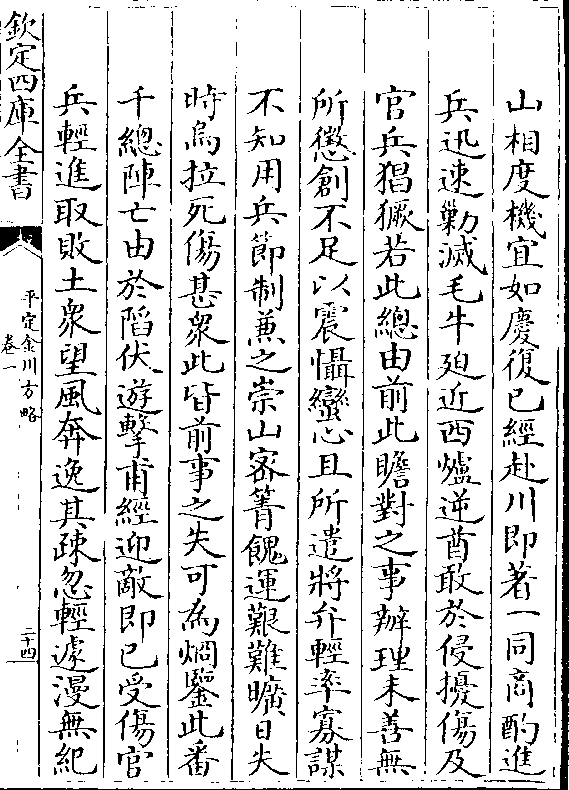 山相度機宜如慶復已經赴川即著一同商酌進
兵迅速勦滅毛牛廹近西爐逆酋敢於侵擾傷及
官兵猖獗若此總由前此瞻對之事辦理未善無
所懲創不足以震懾蠻心且所遣將弁輕率寡謀
不知用兵節制兼之崇山密箐餽運艱難曠日失
時烏拉死傷甚衆此皆前事之失可為烱鑒此番
千總陣亡由於陷伏遊擊甫經迎敵即已受傷官
兵輕進取敗土衆望風奔逸其疎忽輕遽漫無紀
欽定四庫全書
平定金川方略
卷一
二十四